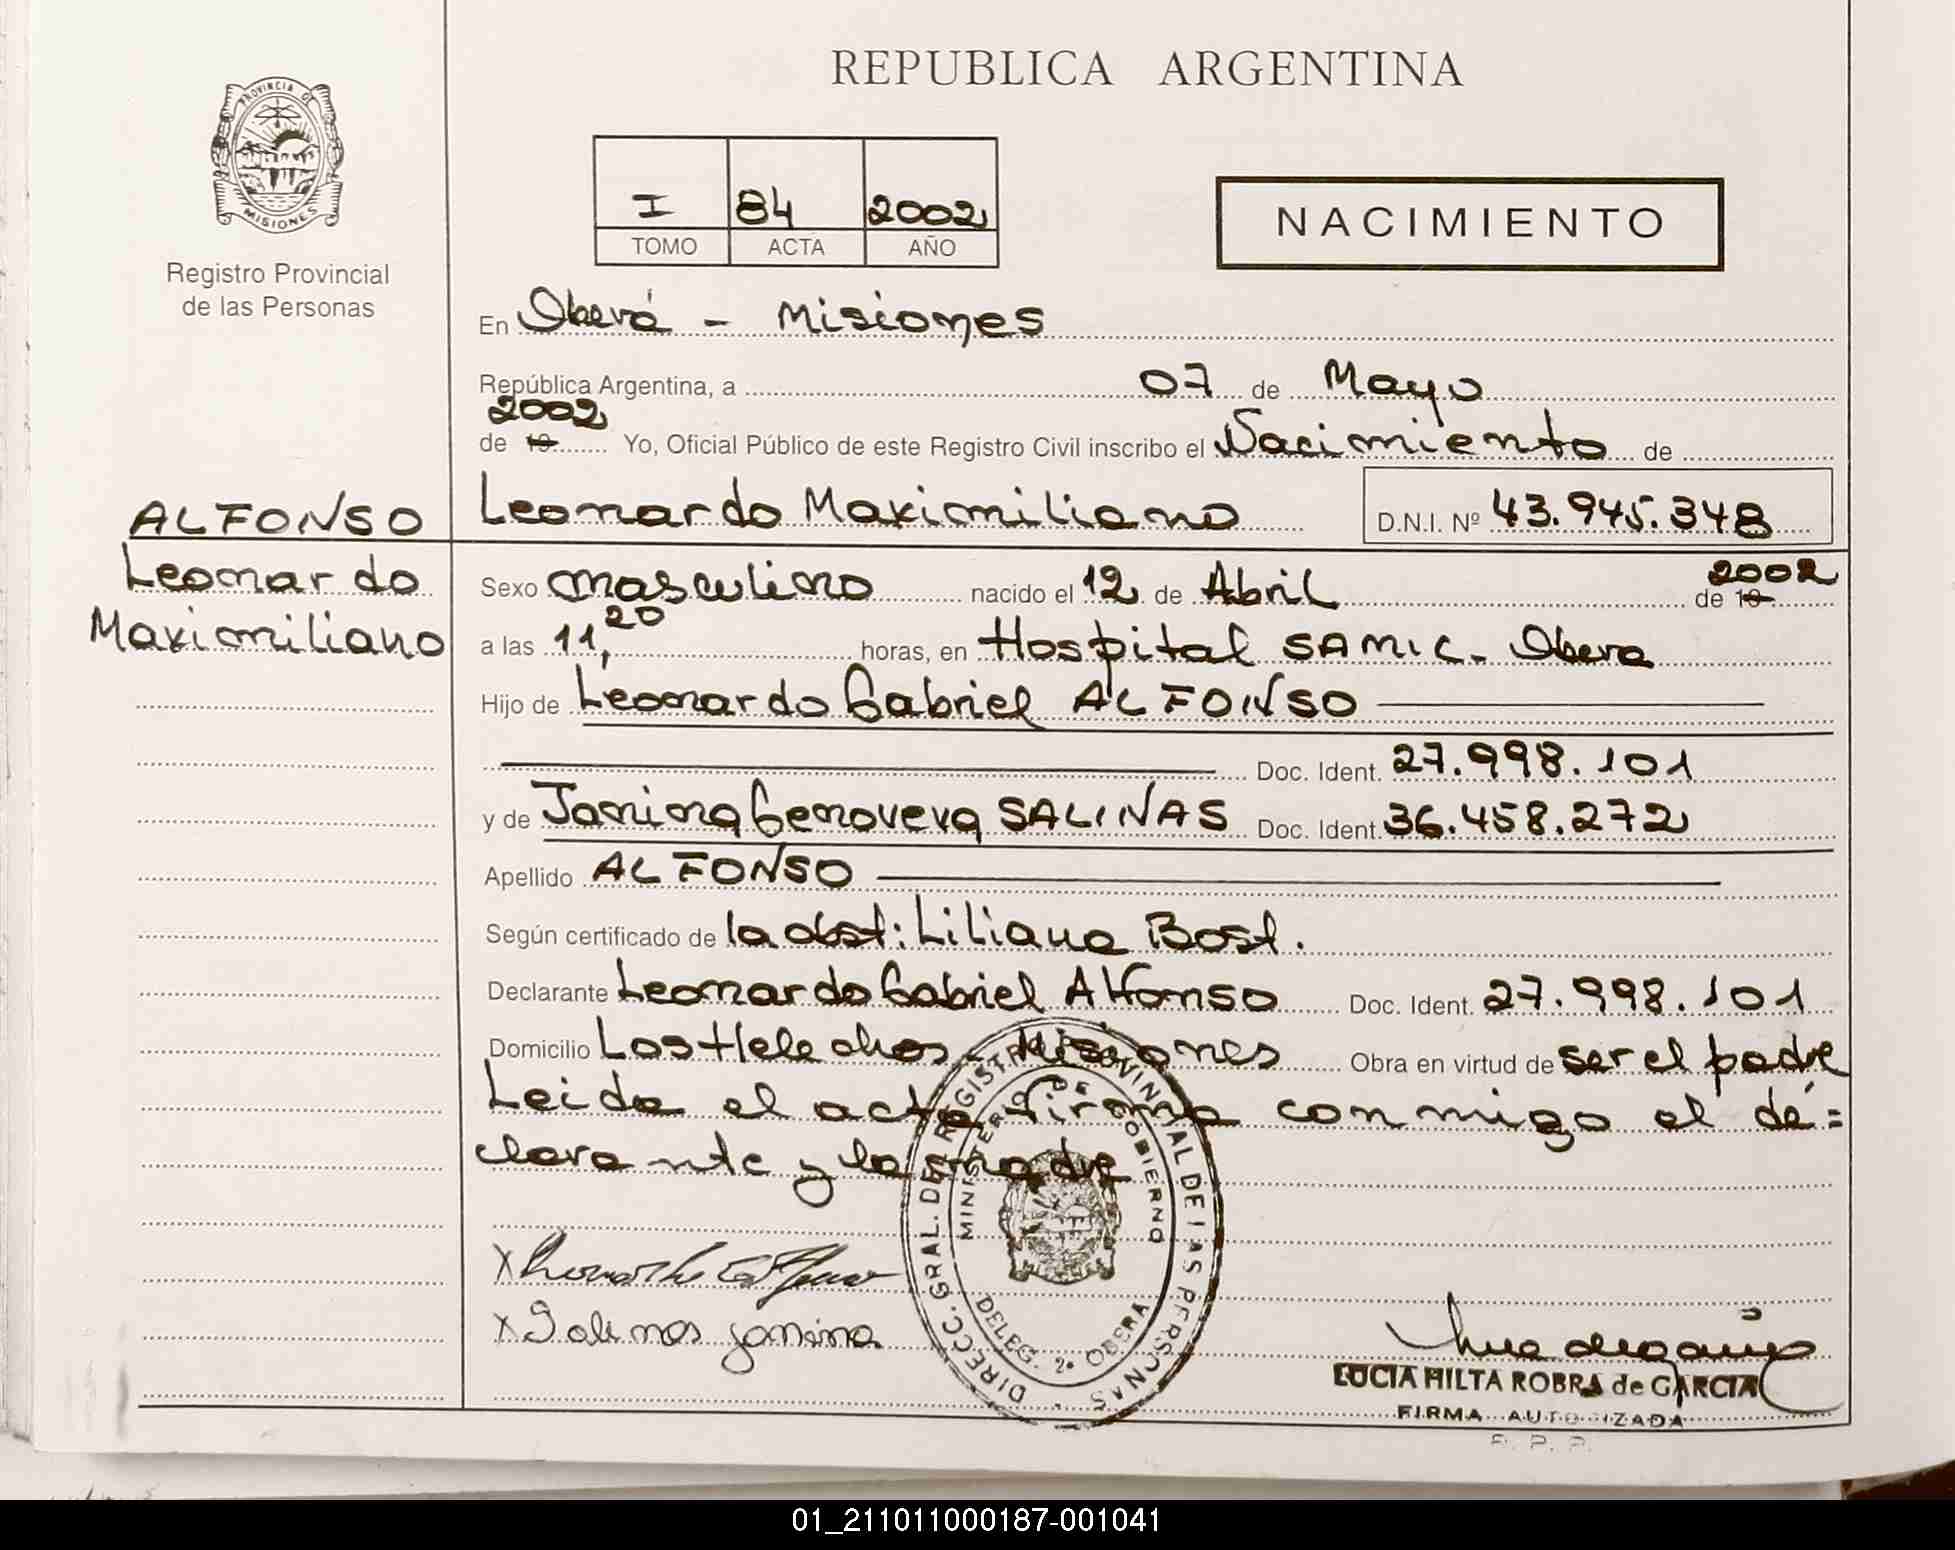 REPUBLICA ARGENTINA
PROVINCIA DE
MISIONES
Registro Provincial
de las Personas
I 84 2002
TOMO ACTA AÑO
NACIMIENTO
En Oberá - Misiones
República Argentina, a 07 de Mayo
2002
de 19 Yo, Oficial Público de este Registro Civil inscribo el Nacimiento de
ALFONSO
Leonardo
Maximiliano
Leonardo Maximiliano D.N.I. Nº 43.945.348
Sexo masculino nacido el 12 de Abril de 19 2002
a las 11,20 horas, en Hospital SAMIC - Obera
Hijo de Leonardo Gabriel ALFONSO
Doc. Ident. 27.998.101
y de Janina Genoveva SALINAS Doc. Ident. 36.458.272
Apellido ALFONSO
Según certificado de la obst: Liliana Bost.
Declarante Leonardo Gabriel Alfonso Doc. Ident. 27.998.101
Domicilio Los Helechos - Misiones Obra en virtud de ser el padre
Leida el acta firma conmigo el de=
clarante y la madre
DIRECC. GRAL. DEL REGISTRO PROVINCIAL DE LAS PERSONAS
MINISTERIO DE GOBIERNO
DELEG. 2ª OBERA
X
X Salinas Janina
LUCIA HILTA ROBRA de GARCIA
FIRMA AUTORIZADA
R. P. P.
01_211011000187-001041